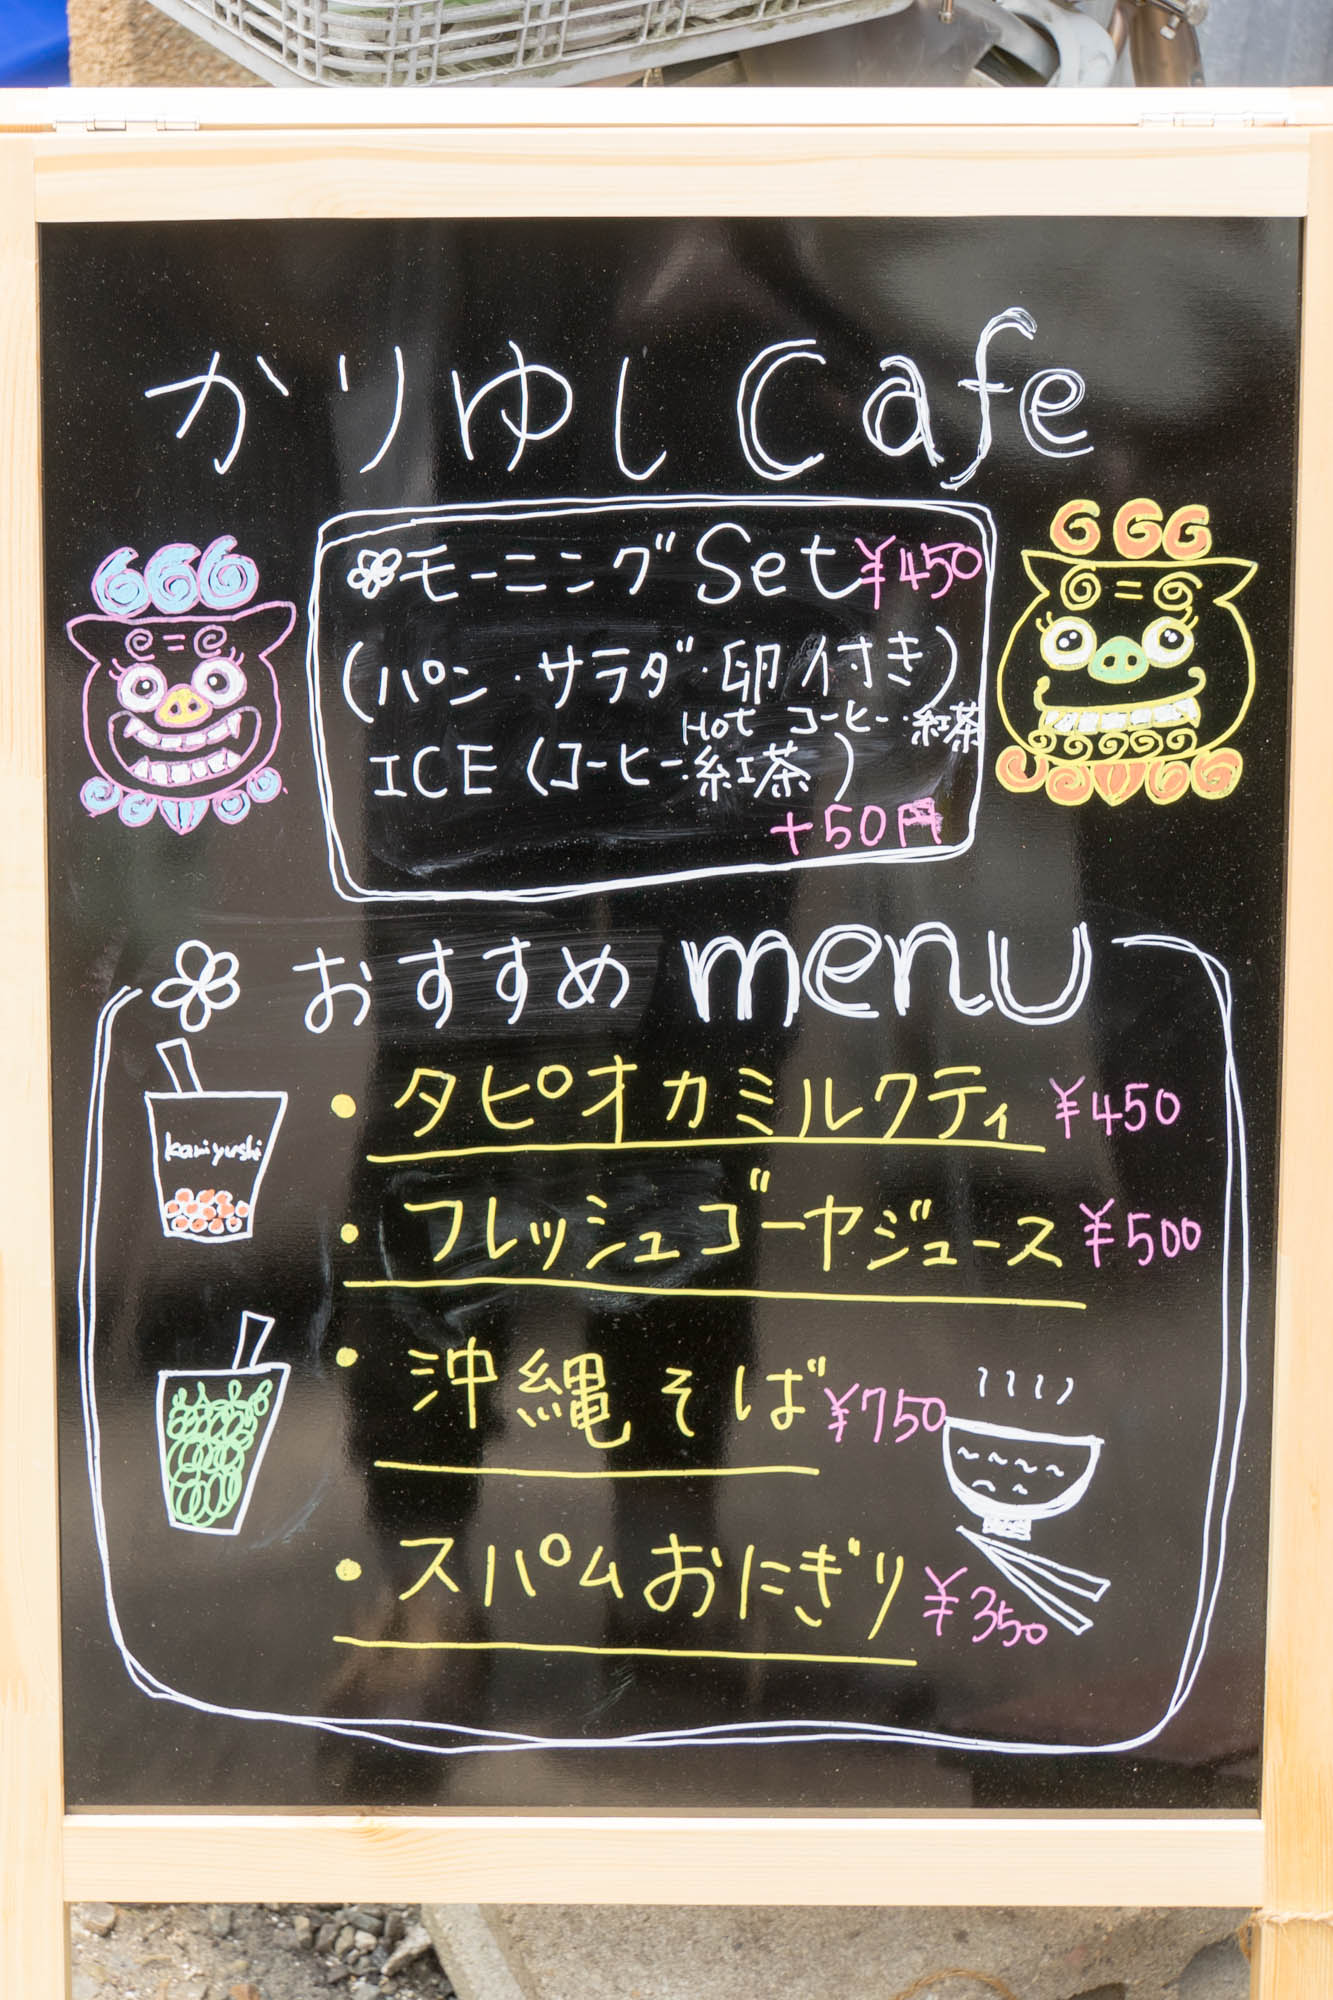 かりゆし Cafe
モーニング Set ¥450
(パン・サラダ・卵 付き)
Hot コーヒー・紅茶
ICE (コーヒー・紅茶)
+50円
おすすめ menu
・タピオカミルクティ ¥450
kariyushi
・フレッシュゴーヤジュース ¥500
・沖縄そば ¥750
・スパムおにぎり ¥350